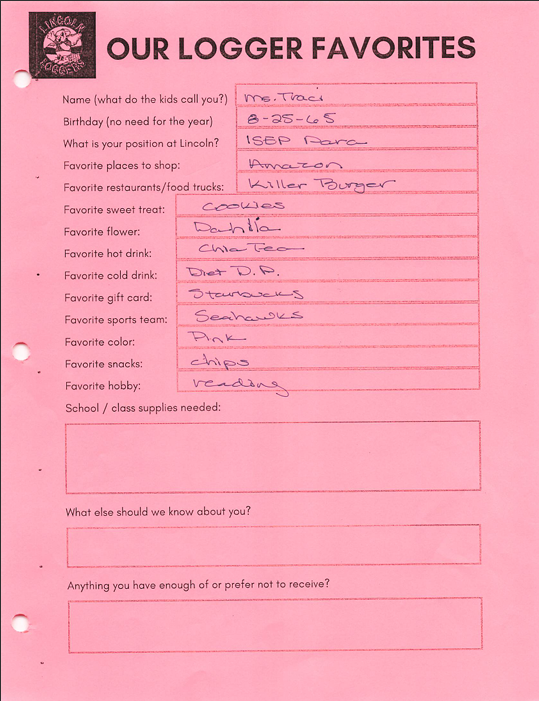 LINCOLN
LOGGERS
OUR LOGGER FAVORITES
Name (what do the kids call you?) Ms. Traci
Birthday (no need for the year) 8-25-65
What is your position at Lincoln? ISEP Para
Favorite places to shop: Amazon
Favorite restaurants/food trucks: Killer Burger
Favorite sweet treat: Cookies
Favorite flower: Dahlia
Favorite hot drink: Chia Tea
Favorite cold drink: Diet D.P.
Favorite gift card: Starbucks
Favorite sports team: Seahawks
Favorite color: Pink
Favorite snacks: chips
Favorite hobby: reading
School / class supplies needed:
What else should we know about you?
Anything you have enough of or prefer not to receive?